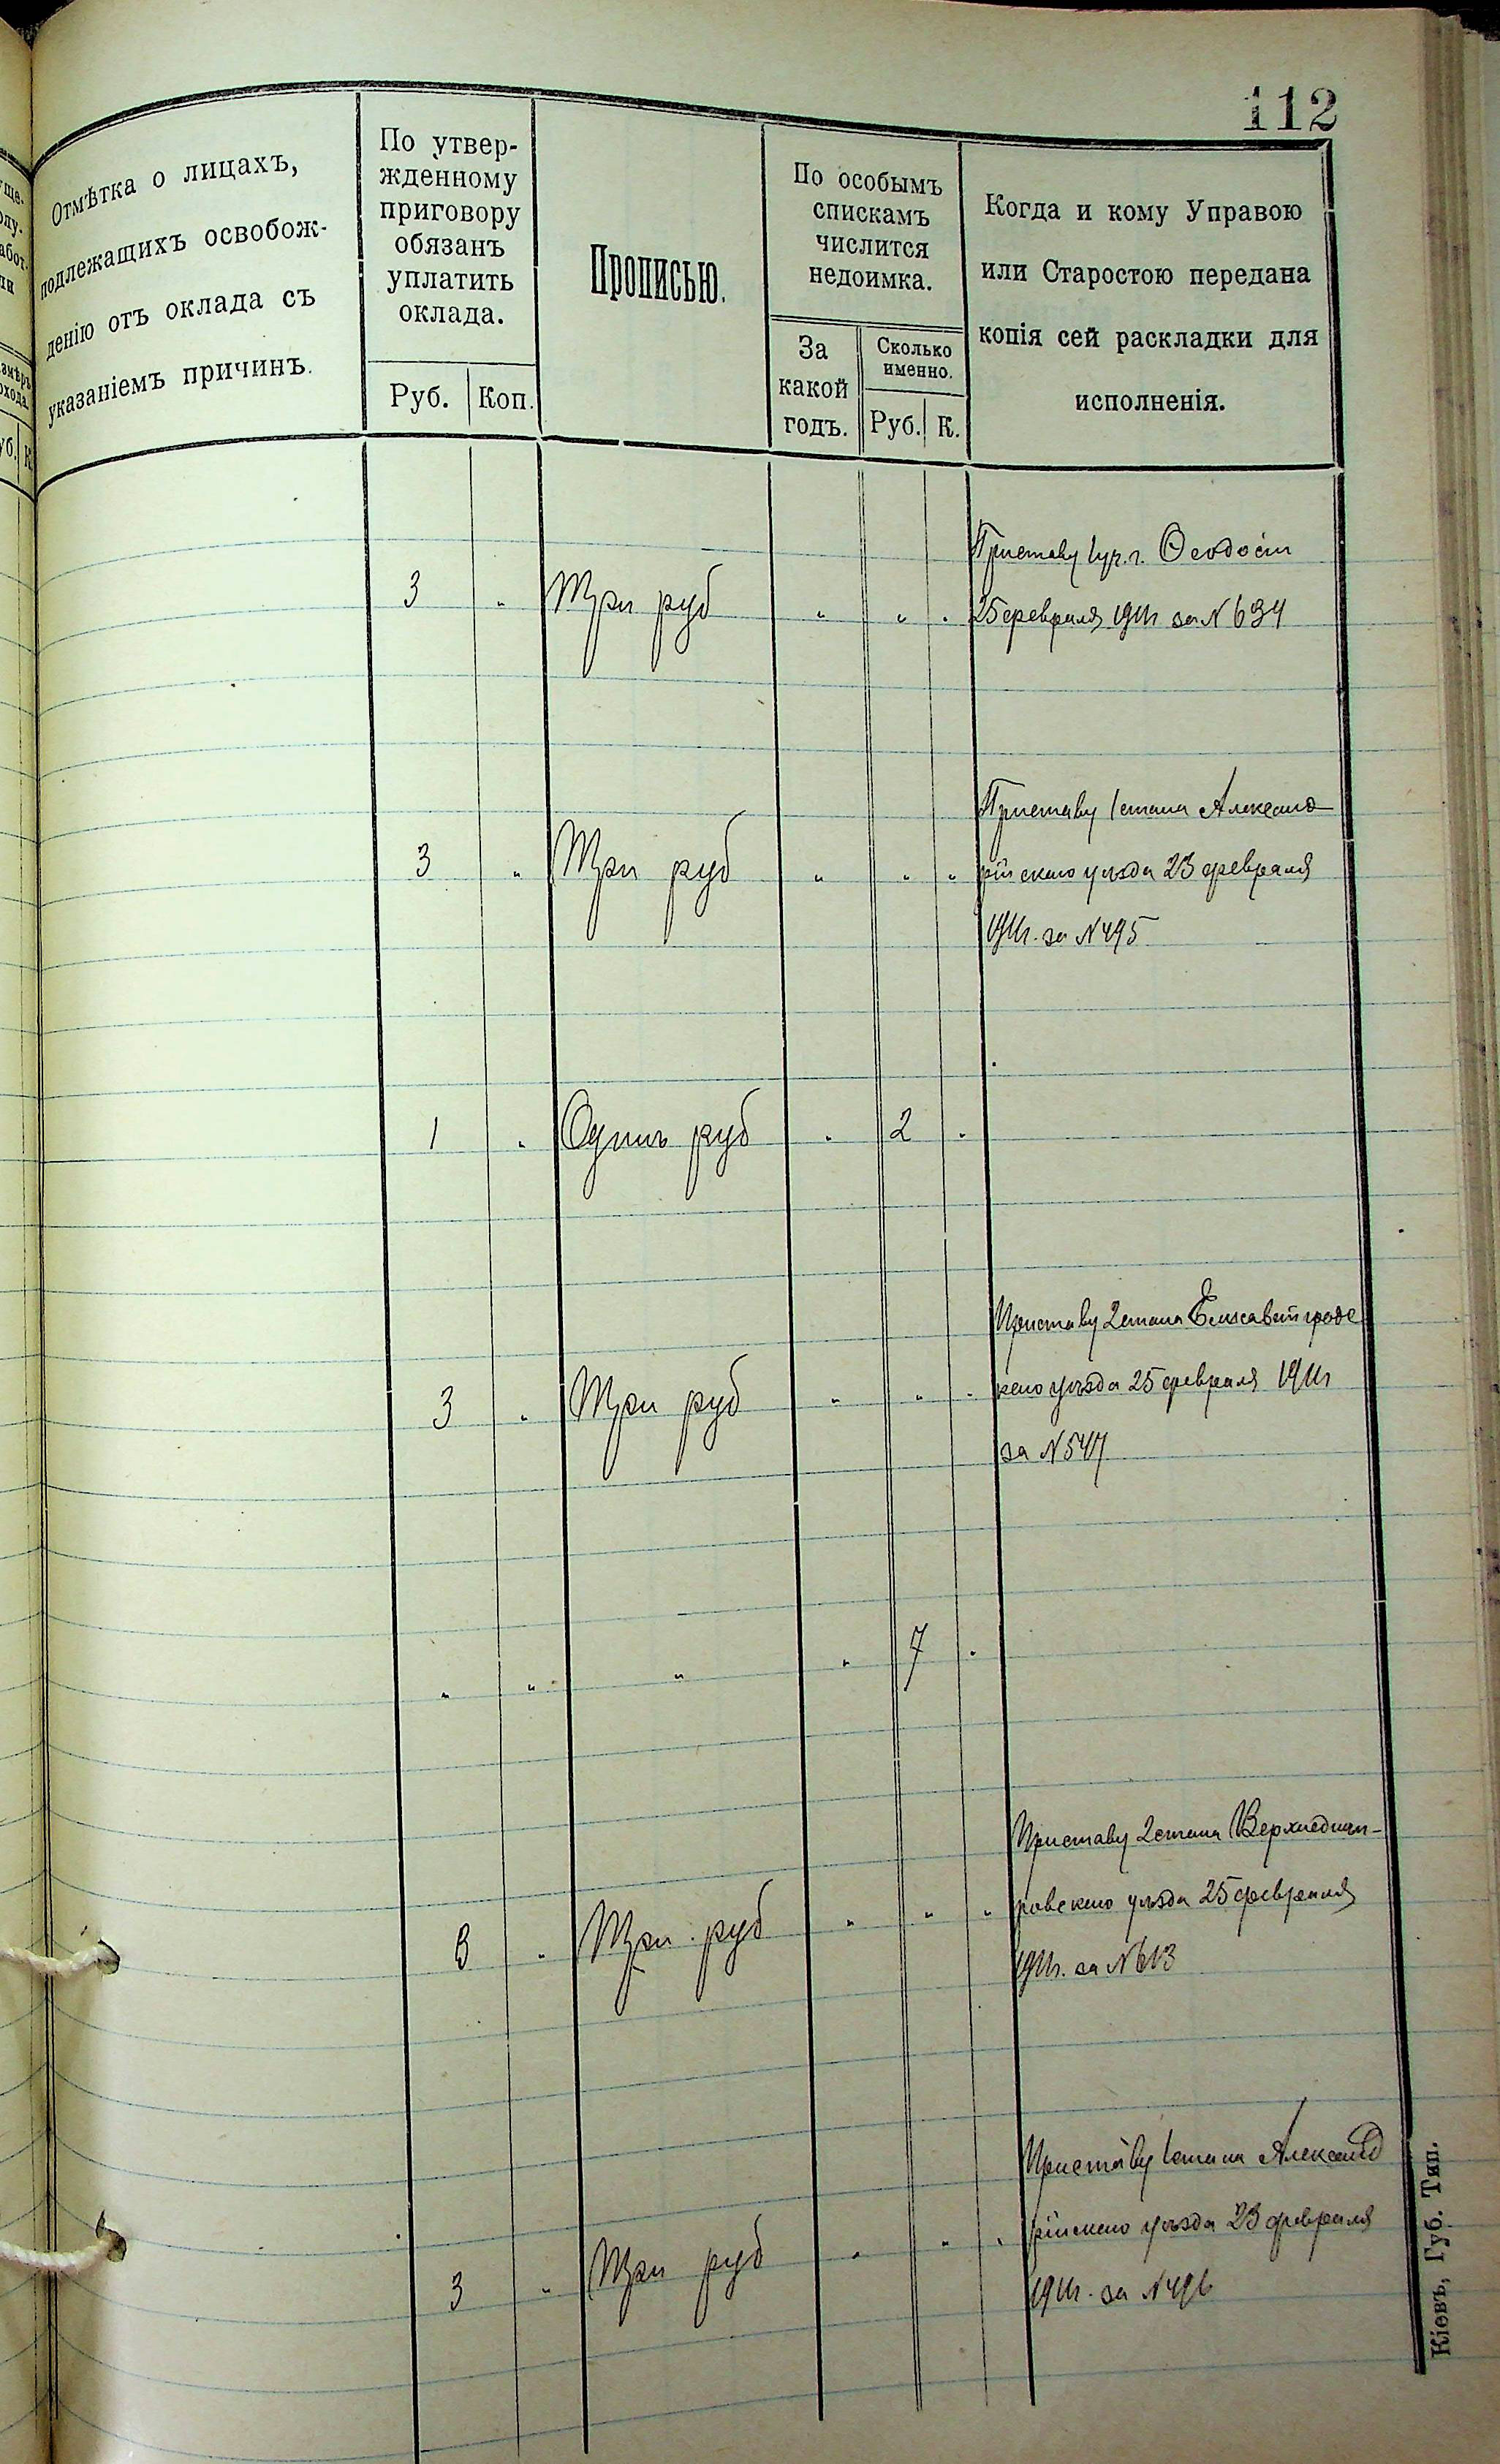 112
Отмѣтка о лицахъ,
подлежащихъ освобож-
денію отъ оклада съ
указаніемъ причинъ.
По утвер-
жденному
приговору
обязанъ
уплатить
оклада.
Руб. Коп.
Прописью.
По особымъ
спискамъ
числится
недоимка.
За
какой
годъ.
Сколько
именно.
Руб. К.
Когда и кому Управою
или Старостою передана
копія сей раскладки для
исполненія.
3 " Три руб " " "
Приставу 1 уч. г. Ѳеодосіи
25 февраля 1911г за N 634
3 " Три руб " " "
Приставу 1 стана Александ
рійскаго уѣзда 23 февраля
1911г. за N 495
1 " Одинъ руб " 2 "
3 " Три руб " " "
Приставу 2 стана Елисаветградс
каго уѣзда 25 февраля 1911г
за N 547
" " " " 7 "
3 " Три руб " " "
Приставу 2 стана Верхнеднѣп-
ровскаго уѣзда 25 февраля
1911г. за N 613
3 " Три руб " " "
Приставу 1 стана Александ
рійскаго уѣзда 23 февраля
1911г. за N 496
Кіевъ, Губ. Тип.